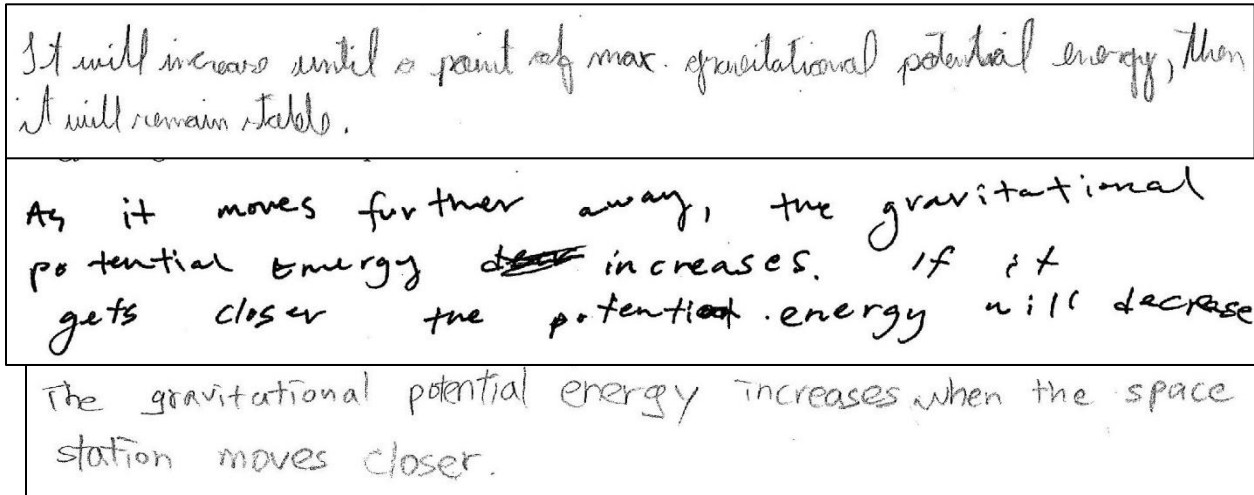 It will increase until a point of max. gravitational potential energy, then
it will remain stable.
As it moves further away, the gravitational
potential energy increases. If it
gets closer the potential energy will decrease
The gravitational potential energy increases when the space
station moves closer.